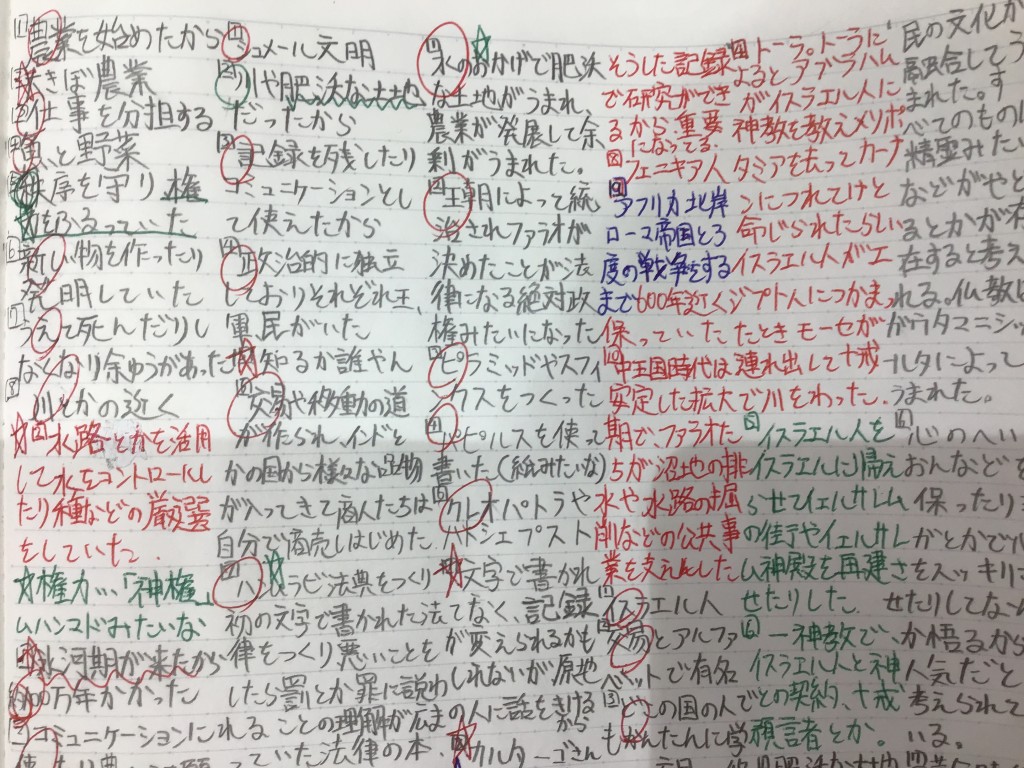 農業を始めたから
大きぼ農業
仕事を分担する
魚と野菜
秩序を守り、権
力をふるっていた
新しい物を作ったり
発明していた
うえて死んだりし
なくなり余ゆうがあった
川とかの近く
水路とかを活用
して水をコントロールし
たり種などの厳選
をしていた.
権力…「神権」
ムハンマドみたいな
氷河期が来たから
100万年かかった
コミュニケーションにれる
シュメール文明
川や肥沃な土地
だったから
記録を残したり
コミュニケーションとし
て使えたから
政治的に独立
しておりそれぞれ王、
軍、民がいた
知るか誰やん
交易や移動の道
が作られ、インドと
かの国から様々な品物
が入ってきて商人たちは
自分で商売しはじめた.
ハンムラビ法典をつくり
初の文字で書かれた法
律をつくり悪いことを
したら罰とか罪に説わ
ることの理解が広ま
ていた法律の本.
水のおかげで肥沃
な土地がうまれ、
農業が発展して余
剰がうまれた。
王朝によって統
治されファラオが
決めたことが法
律になる絶対政
権みたいになった
ピラミッドやスフィ
クスをつくった
パピルスを使って
書いた(紙みたいな)
クレオパトラや
ハトシェプスト
文字で書かれ
てなく、記録
が変えられるかも
しれないが原地
の人に話をきける
から
カルターゴさん
そうした記録
で石研究ができ
るから、重要
になってる.
フェニキア人
アフリカ北岸
ローマ帝国とろ
度の戦争をする
まで600年近く
保っていた
中王国時代は
安定した拡大
期で、ファラオた
ちが沼地の排
水や水路の掘
削などの公共事
業を支えんした
イスラエル人
交易とアルファ
ベットで有名
どこの国の人で
もかんたんに学
トーラ。トーラに
よるとアブラハム
がイスラエル人に
神教を教えメソポ
タミアを去ってカーナ
ンにつれてけと
命じられたらしい
イスラエル人がエ
ジプト人につかまっ
たときモーセが
連れ出して十戒
で川をわった.
イスラエル人を
イスラエルに帰え
らせてイェルサレム
の住行やイェルサレ
ム神殿を再建さ
せたりした.
一神教で、
イスラエル人と神
との契約、十戒
預言者とか。
民の文化が
融合してう
まれた。す
べてのものに
精霊みたい
などがやど
るとかが存
在すると考え
れる。仏教は
ガウタマニシッ
ルタによって
うまれた。
心のへい
おんなどを
保ったり
がとかでい
をスッキリさ
せたりしてな
か悟るから
人気だと
考えられて
いる。